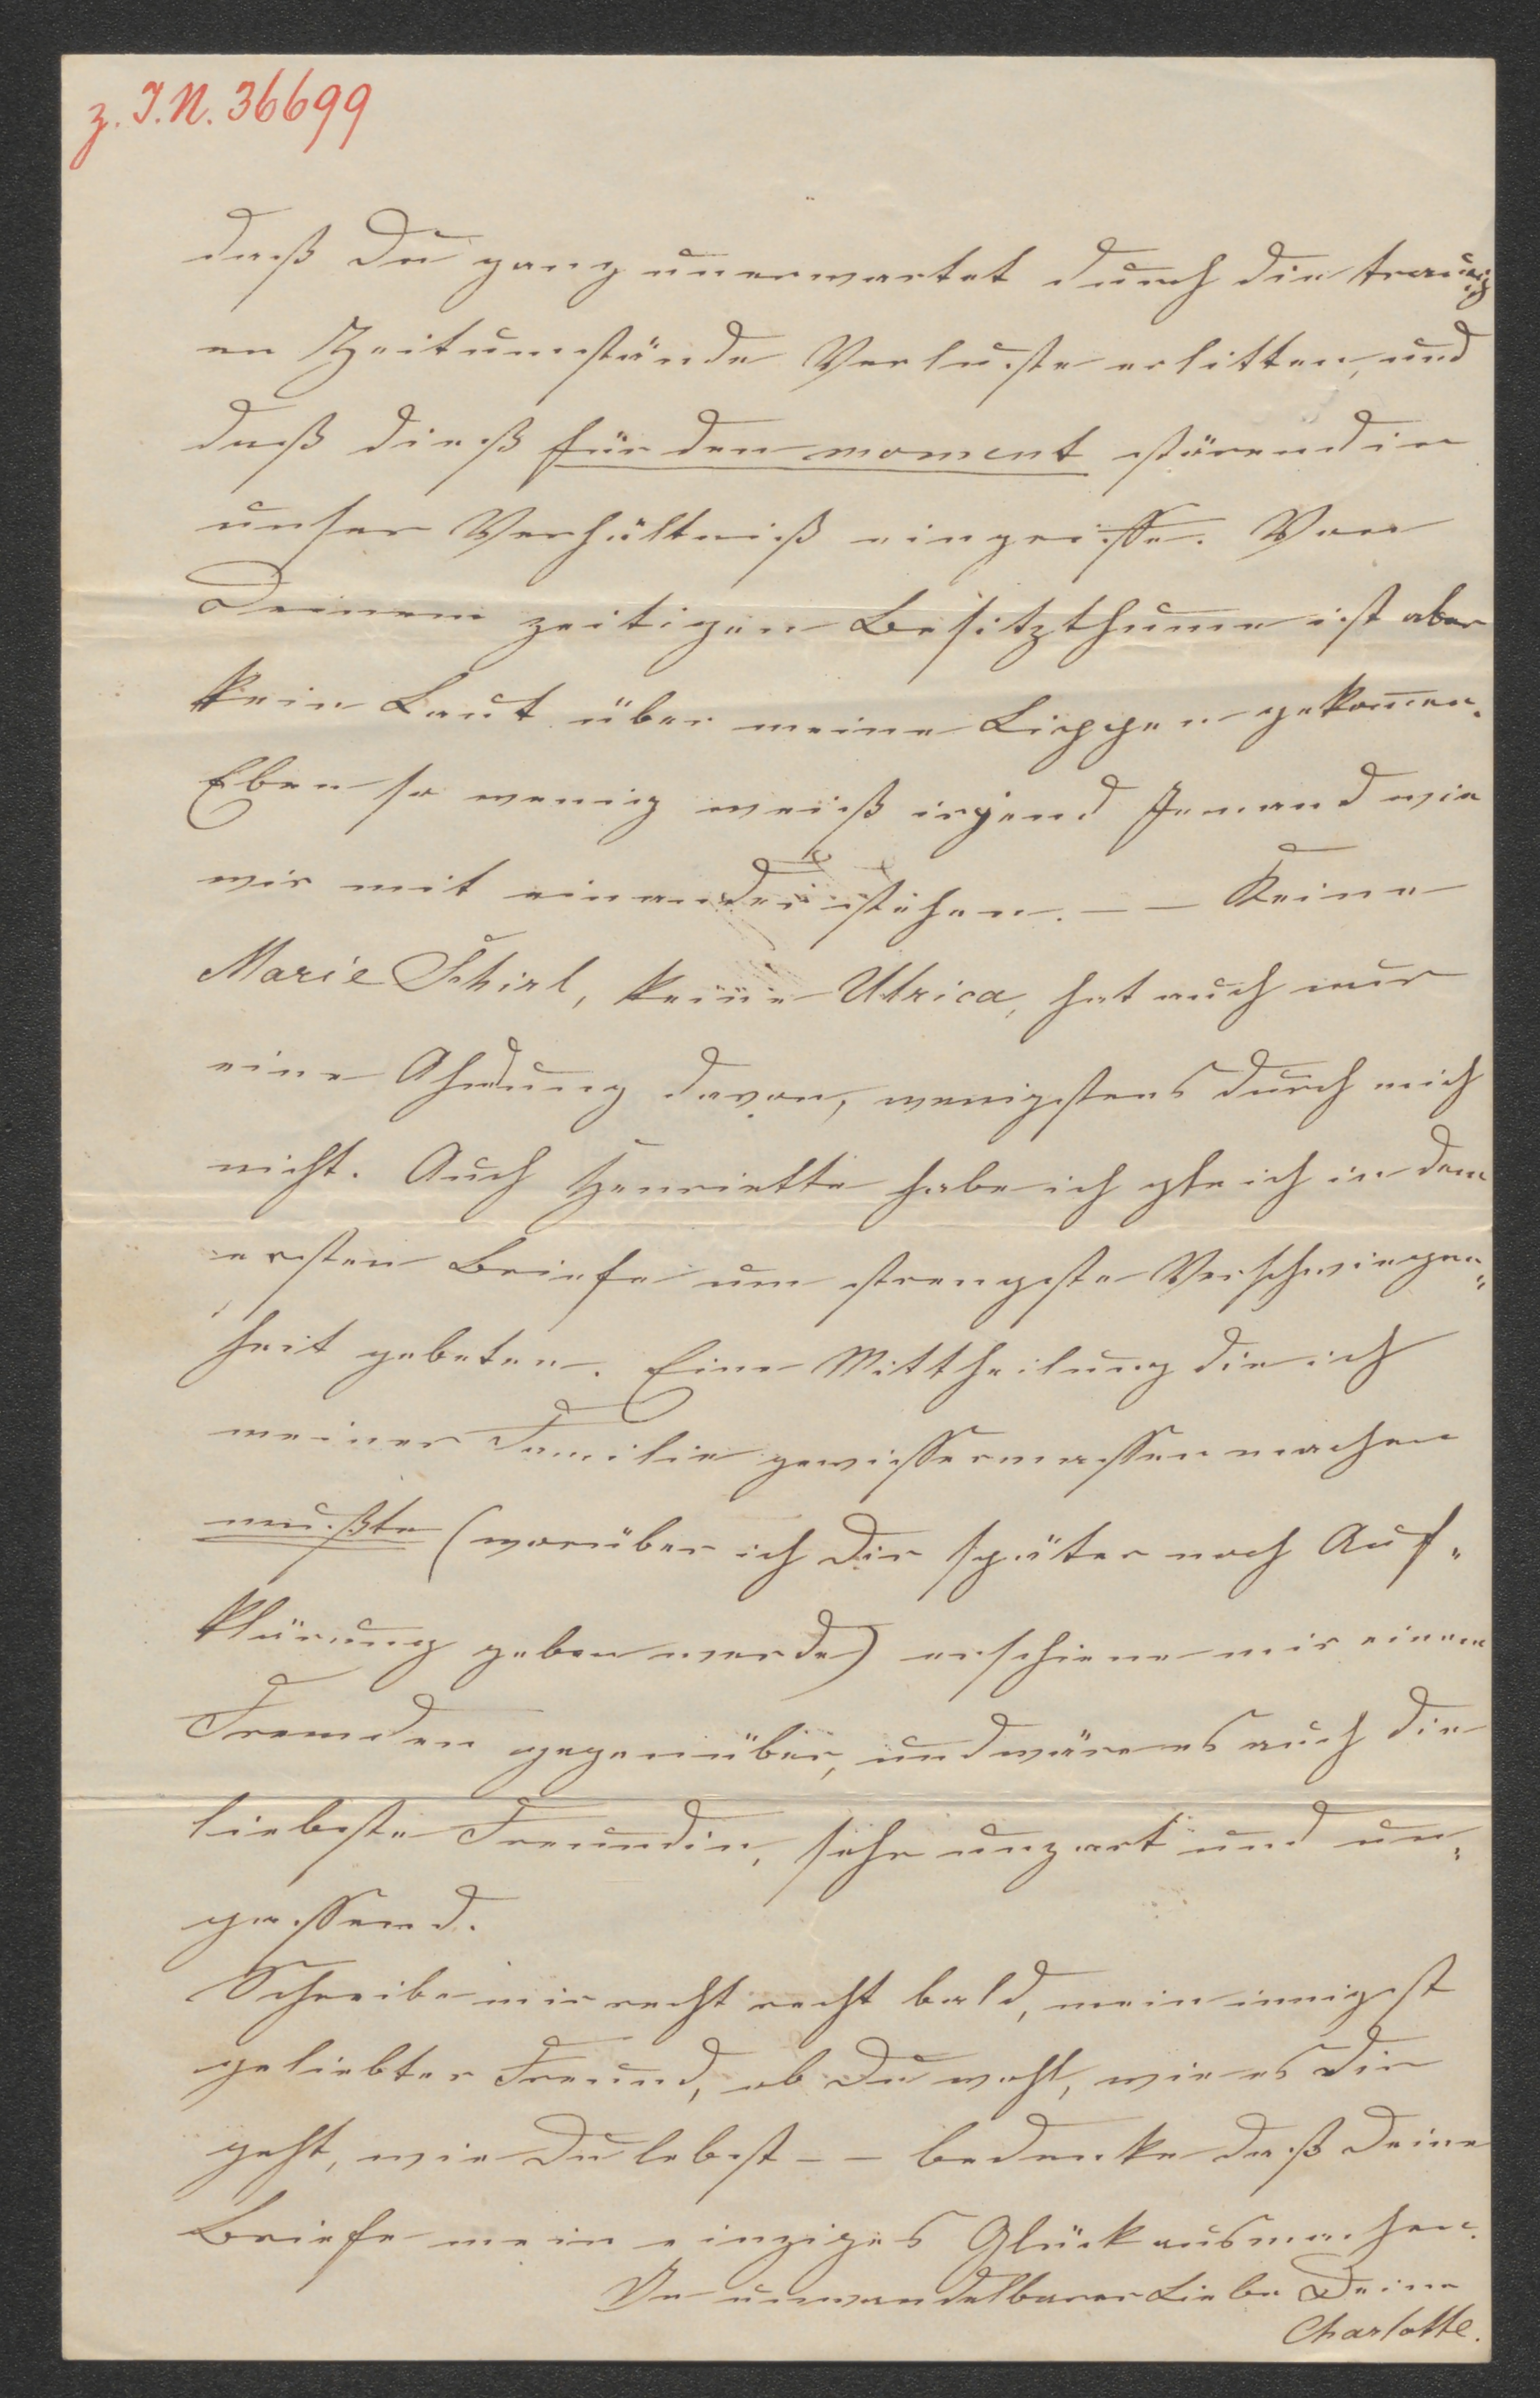 z. I.N. 36699
daß Du ganz unerwartet durch die traurig
en Zeitumstände Verluste erlitten, und
daß dieß für den moment störend in
unser Verhältniß eingriffe. Von
Deinem zeitigen Besitzthume ist aber
kein Laut über meine Lippen gekom̅en.
Eben so wenig weiß irgend Jemand wie
wir mit einander stehen. — — Keine
Marie Schirl, keine Ulrica, hat auch nur
eine Ahndung davon, wenigstens durch mich
nicht. Auch Henriette habe ich gleich in dem
ersten Briefe um strengste Verschwiegen„
heit gebeten. Eine Mittheilung die ich
meiner Familie gewissermassen machen
mußte (worüber ich Dir später noch Auf„
klärung geben werde) erschiene mir einem
Fremden gegenüber, und wäre es auch die
liebste Freundin, sehr unzart und un„
passend.
Schreibe mir recht recht bald, mein innigst
geliebter Freund, ob Du wohl, wie es Dir
geht, wie Du lebst — — bedenke daß Deine
Briefe mein einziges Glück ausmachen.
In unwandelbarer Liebe Deine
Charlotte.